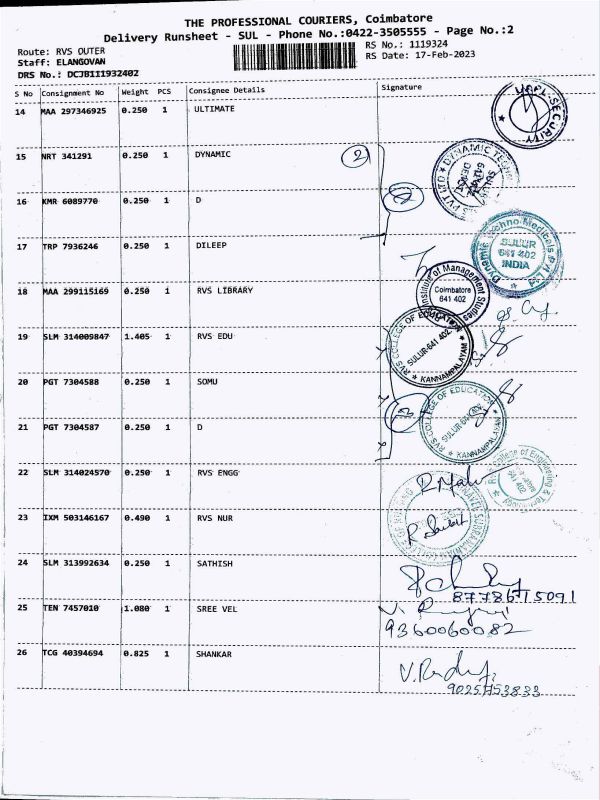 THE PROFESSIONAL COURIERS, Coimbatore
Delivery Runsheet - SUL - Phone No.:0422-3505555 - Page No.:2
Route: RVS OUTER
RS No.: 1119324
Staff: ELANGOVAN
RS Date: 17-Feb-2023
DRS No.: DCJB111932402
S No Consignment No Weight PCS Consignee Details Signature
14 MAA 297346925 0.250 1 ULTIMATE
SECURITY
15 NRT 341291 0.250 1 DYNAMIC 2
DYNAMIC
16 KMR 6089770 0.250 1 D
17 TRP 7936246 0.250 1 DILEEP
Dynamic Techno Medicals Pvt Ltd
SULUR
641 402
INDIA
18 MAA 299115169 0.250 1 RVS LIBRARY
Institute of Management Studies
Coimbatore
641 402
19 SLM 314009847 1.405 1 RVS EDU
RVS COLLEGE OF EDUCATION
SULUR-641 402
KANNAMPALAYAM
20 PGT 7304588 0.250 1 SOMU
21 PGT 7304587 0.250 1 D
RVS COLLEGE OF EDUCATION
SULUR-641 402
KANNAMPALAYAM
22 SLM 314024570 0.250 1 RVS ENGG
College of Engineering & Technology
641 402
23 IXM 503146167 0.490 1 RVS NUR
COLLEGE OF NURSING
24 SLM 313992634 0.250 1 SATHISH
8778615091
25 TEN 7457010 1.080 1 SREE VEL
9360060082
26 TCG 40394694 0.825 1 SHANKAR
9025753833